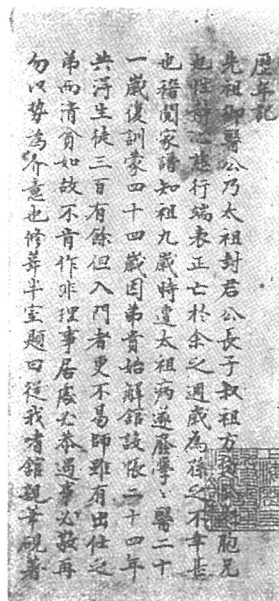 歷年記
先祖御醫公乃太祖封君公長子叔祖方
胞兄
也性靜心慈行端表正亡於余之週歲為孫之不幸甚
也稽閱家譜知祖九歲時遭太祖病遂廢學學醫二十
一歲復訓蒙四十四歲因弟貴始解館設帳二十四年
共得生徒三百有餘但入門者更不易師雖有出仕之
弟而清貧如故不肯作非理事居處必恭過事必敬再
勿以勢為介意也修葺半室題曰從我嗜館觀筆硯著